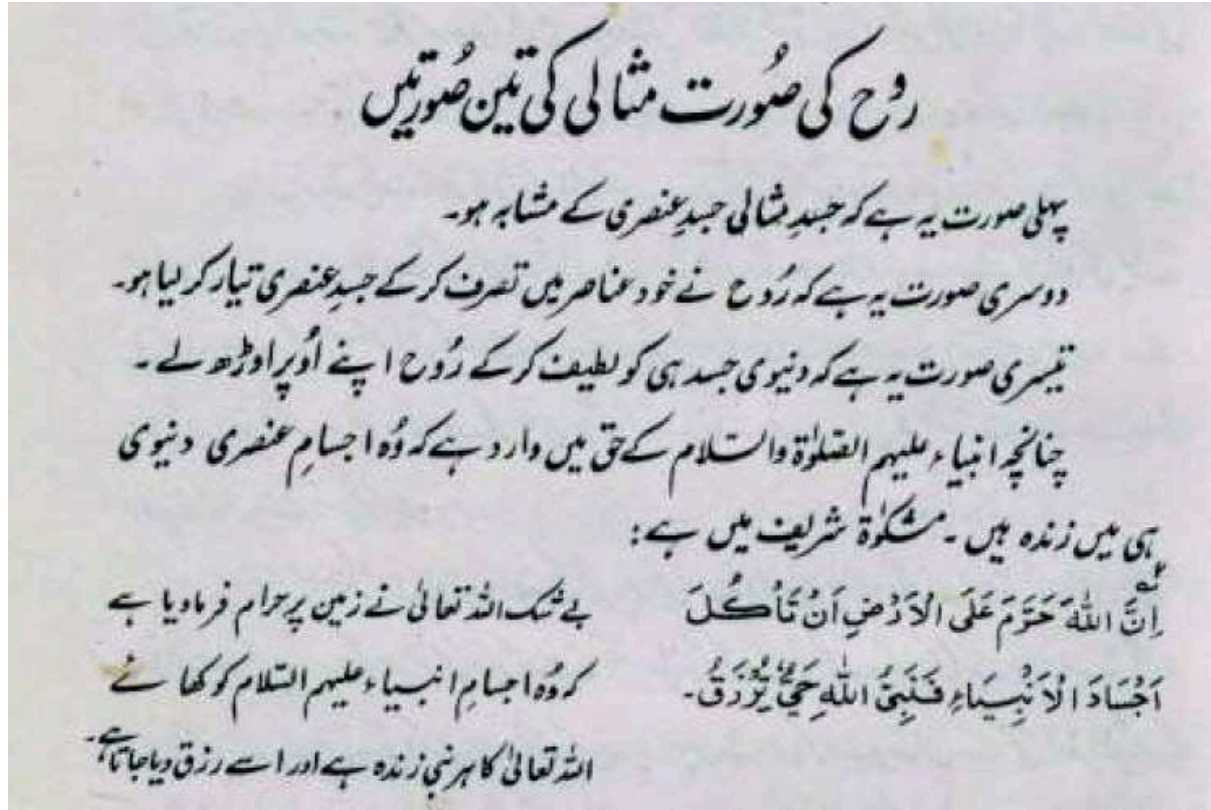 رُوح کی صُورت مثالی کی تین صُورتیں
پہلی صورت یہ ہے کہ جسدِ مثالی جسدِ عنصری کے مشابہ ہو۔
دوسری صورت یہ ہے کہ رُوح نے خود عناصر میں تصرف کر کے جسدِ عنصری تیار کر لیا ہو۔
تیسری صورت یہ ہے کہ دنیوی جسد ہی کو لطیف کر کے رُوح اپنے اُوپر اوڑھ لے۔
چنانچہ انبیاء علیہم الصّلوٰۃ والسّلام کے حق میں وارد ہے کہ وُہ اجسامِ عنصری دنیوی
ہی میں زندہ ہیں۔ مشکوٰۃ شریف میں ہے:
اِنَّ اللّٰہَ حَرَّمَ عَلَی الْاَرْضِ اَنْ تَاْکُلَ
اَجْسَادَ الْاَنْبِیَاءِ فَنَبِیُّ اللّٰہِ حَیٌّ یُّرْزَقُ۔
بے شک اللہ تعالیٰ نے زمین پر حرام فرما دیا ہے
کہ وُہ اجسامِ انبیاء علیہم السّلام کو کھائے
اللہ تعالیٰ کا ہر نبی زندہ ہے اور اسے رزق دیا جاتا ہے۔